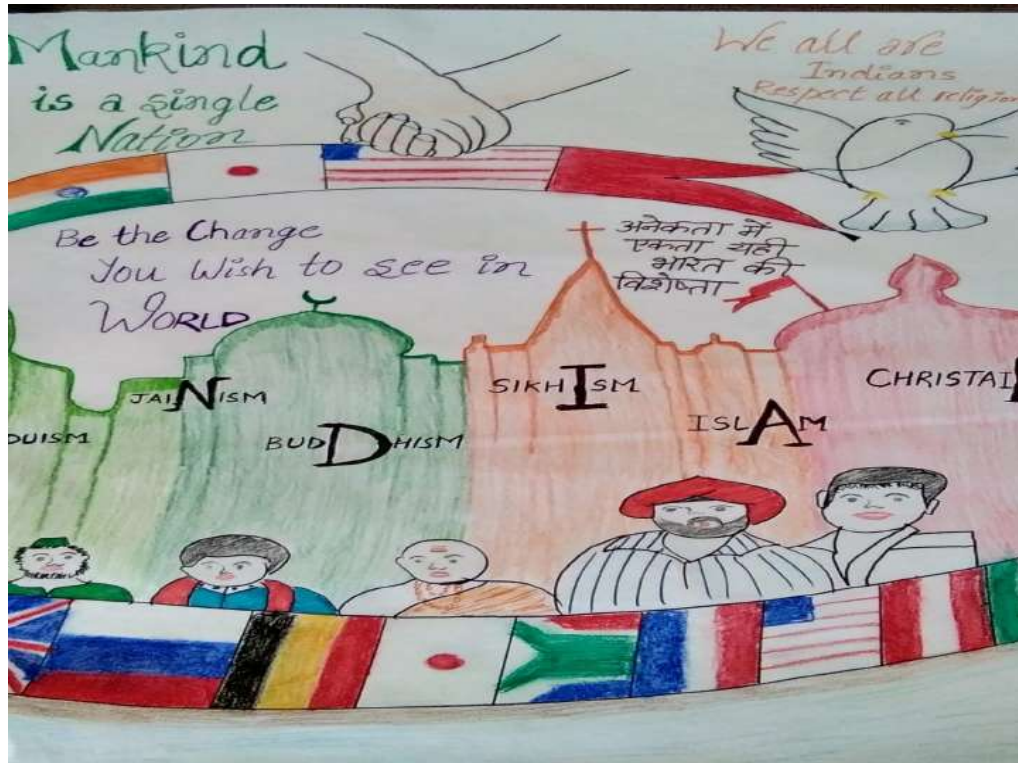 Mankind
is a single
Nation
We all are
Indians
Respect all religion
Be the Change
You Wish to see in
WORLD
अनेकता में
एकता यही
भारत की
विशेष्ता
JAINISM
SIKHISM
CHRISTAI
DUISM
BUDDHISM
ISLAM